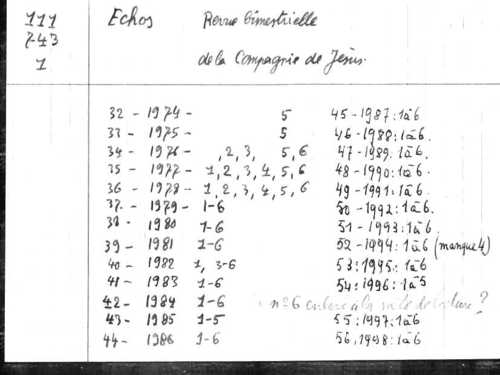 111
743
1
Echos Revue bimestrielle
de la Compagnie de Jésus.
32 - 1974 - 5
33 - 1975 - 5
34 - 1976 - , 2, 3, 5, 6
35 - 1977 - 1, 2, 3, 4, 5, 6
36 - 1978 - 1, 2, 3, 4, 5, 6
37 - 1979 - 1-6
38 - 1980 1-6
39 - 1981 1-6
40 - 1982 1, 3-6
41 - 1983 1-6
42 - 1984 1-6
43 - 1985 1-5
44 - 1986 1-6
45 - 1987 : 1à6
46 - 1988 : 1à6.
47 - 1989 : 1à6.
48 - 1990 : 1à6.
49 - 1991 : 1à6.
50 - 1992 : 1à6.
51 - 1993 : 1à6
52 - 1994 : 1à6 (manque 4)
53 : 1995 : 1à6
54 : 1996 : 1à5
n° 6 encore à la salle de lecture ?
55 : 1997 : 1à6
56, 1998 : 1à6